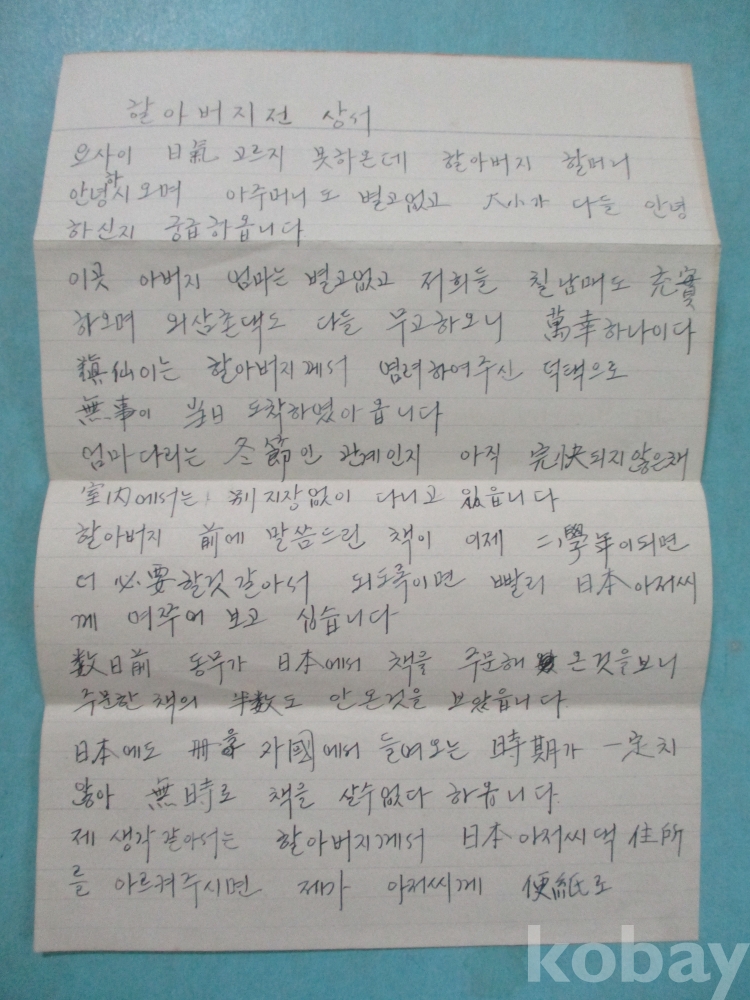 할아버지전 상서
요사이 日氣 고르지 못하온데 할아버지 할머니
안녕하시오며 아주머니도 별고없고 大小가 다들 안녕
하신지 궁급하옵니다
이곳 아버지 엄마는 별고없고 저희들 칠남매도 充實
하오며 외삼촌댁도 다들 무고하오니 萬幸하나이다
仙이는 할아버지께서 염려하여주신 덕택으로
無事이 当日 도착하였아옵니다
엄마다리는 冬節인 관계인지 아직 完快되지않은채
室內에서는 別지장없이 다니고 있읍니다
할아버지 前에 말씀드린 책이 이제 二學年이되면
더 必要할것같아서 되도록이면 빨리 日本아저씨
께 여쭈어 보고 싶습니다
数日前 동무가 日本에서 책을 주문해 온것을보니
주문한 책의 半数도 안온것을 보았읍니다
日本에도 外國에서 들여오는 時期가 一定치
않아 無時로 책을 살수없다 하옵니다
제 생각같아서는 할아버지께서 日本아저씨댁 住所
를 아르켜주시면 제가 아저씨게 便紙로
kobay